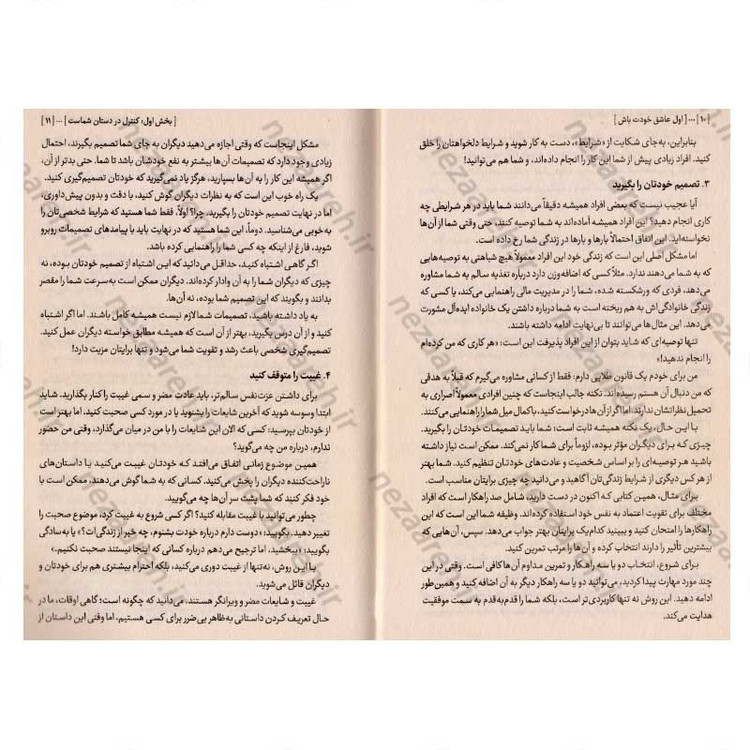 [ ۱۰ ] ... [ اول عاشق خودت باش ]
بنابراین، به‌جای شکایت از «شرایط»، دست به کار شوید و شرایط دلخواهتان را خلق
کنید. افراد زیادی پیش از شما این کار را انجام داده‌اند، و شما هم می‌توانید!
۳. تصمیم خودتان را بگیرید
آیا عجیب نیست که بعضی افراد همیشه دقیقاً می‌دانند شما باید در هر شرایطی چه
کاری انجام دهید؟ این افراد همیشه آماده‌اند به شما توصیه کنند، حتی وقتی شما از آن‌ها
نخواسته‌اید. این اتفاق احتمالاً بارها و بارها در زندگی شما رخ داده است.
اما مشکل اصلی این است که زندگی خود این افراد معمولاً هیچ شباهتی به توصیه‌هایی
که به شما می‌دهند ندارد. مثلاً کسی که اضافه‌وزن دارد درباره تغذیه سالم به شما مشاوره
می‌دهد، فردی که ورشکسته شده، شما را در مدیریت مالی راهنمایی می‌کند، یا کسی که
زندگی خانوادگی‌اش به هم ریخته است به شما درباره داشتن یک خانواده ایده‌آل مشورت
می‌دهد. این مثال‌ها می‌توانند تا بی‌نهایت ادامه داشته باشند.
تنها توصیه‌ای که شاید بتوان از این افراد پذیرفت این است: «هر کاری که من کرده‌ام
را انجام ندهید!»
من برای خودم یک قانون طلایی دارم: فقط از کسانی مشاوره می‌گیرم که قبلاً به هدفی
که من دنبال آن هستم رسیده‌اند. نکته جالب اینجاست که چنین افرادی معمولاً اصراری به
تحمیل نظراتشان ندارند. اما اگر از آن‌ها درخواست کنید، با کمال میل شما را راهنمایی می‌کنند.
با این حال، یک نکته همیشه ثابت است: شما باید تصمیمات خودتان را بگیرید.
چیزی که برای دیگران مؤثر بوده، لزوماً برای شما کار نمی‌کند. ممکن است نیاز داشته
باشید هر توصیه‌ای را بر اساس شخصیت و عادت‌های خودتان تنظیم کنید. شما بهتر
از هر کس دیگری از شرایط زندگی‌تان آگاهید و می‌دانید چه چیزی برایتان مناسب است.
برای مثال، همین کتابی که اکنون در دست دارید، شامل صد راهکار است که افراد
مختلف برای تقویت اعتماد به نفس خود استفاده کرده‌اند. وظیفه شما این است که این
راهکارها را امتحان کنید و ببینید کدام‌یک برایتان بهتر جواب می‌دهد. سپس، آن‌هایی که
بیشترین تأثیر را دارند انتخاب کرده و آن‌ها را مرتب تمرین کنید.
برای شروع، انتخاب دو یا سه راهکار و تمرین مداوم آن‌ها کافی است. وقتی در این
چند مورد مهارت پیدا کردید، می‌توانید دو یا سه راهکار دیگر به آن اضافه کنید و همین‌طور
ادامه دهید. این روش نه تنها کاربردی‌تر است، بلکه شما را قدم‌به‌قدم به سمت موفقیت
هدایت می‌کند.
[ بخش اول: کنترل در دستان شماست ] ... [ ۱۱ ]
مشکل اینجاست که وقتی اجازه می‌دهید دیگران به جای شما تصمیم بگیرند، احتمال
زیادی وجود دارد که تصمیمات آن‌ها بیشتر به نفع خودشان باشد تا شما. حتی بدتر از آن،
اگر همیشه این کار را به آن‌ها بسپارید، هرگز یاد نمی‌گیرید که خودتان تصمیم‌گیری کنید.
یک راه خوب این است که به نظرات دیگران گوش کنید، با دقت و بدون پیش‌داوری،
اما در نهایت تصمیم خودتان را بگیرید. چرا؟ اولاً، فقط شما هستید که شرایط شخصی‌تان را
به خوبی می‌شناسید. دوماً، این شما هستید که در نهایت باید با پیامدهای تصمیمات روبرو
شوید، فارغ از اینکه چه کسی شما را راهنمایی کرده باشد.
اگر گاهی اشتباه کنید، حداقل می‌دانید که این اشتباه از تصمیم خودتان بوده، نه
چیزی که دیگران شما را به آن وادار کرده‌اند. دیگران ممکن است به سرعت شما را مقصر
بدانند و بگویند که این تصمیم شما بوده، نه آن‌ها.
به یاد داشته باشید، تصمیمات شما لازم نیست همیشه کامل باشند. اما اگر اشتباه
کنید و از آن درس بگیرید، بهتر از آن است که همیشه مطابق خواسته دیگران عمل کنید.
تصمیم‌گیری شخصی باعث رشد و تقویت شما می‌شود و تنها برایتان مزیت دارد!
۴. غیبت را متوقف کنید
برای داشتن عزت‌نفس سالم‌تر، باید عادت مضر و سمی غیبت را کنار بگذارید. شاید
ابتدا وسوسه شوید که آخرین شایعات را بشنوید یا در مورد کسی صحبت کنید، اما بهتر است
از خودتان بپرسید: کسی که الان این شایعات را با من در میان می‌گذارد، وقتی من حضور
ندارم، درباره من چه می‌گوید؟
همین موضوع زمانی اتفاق می‌افتد که خودتان غیبت می‌کنید یا داستان‌های
ناراحت‌کننده دیگران را پخش می‌کنید. کسانی که به شما گوش می‌دهند، ممکن است با
خود فکر کنند که شما پشت سر آن‌ها چه می‌گویید.
چطور می‌توانید با غیبت مقابله کنید؟ اگر کسی شروع به غیبت کرد، موضوع صحبت را
تغییر دهید. بگویید: «دوست دارم درباره خودت بشنوم، چه خبر از زندگی‌ات؟» یا به‌سادگی
بگویید: «ببخشید، اما ترجیح می‌دهم درباره کسانی که اینجا نیستند صحبت نکنیم.»
با این روش، نه‌تنها از غیبت دوری می‌کنید، بلکه احترام بیشتری هم برای خودتان و
دیگران قائل می‌شوید.
غیبت و شایعات مضر و ویرانگر هستند. می‌دانید که چگونه است؛ گاهی اوقات، ما در
حال تعریف کردن داستانی به‌ظاهر بی‌ضرر برای کسی هستیم، اما وقتی این داستان از
nezaareh.ir